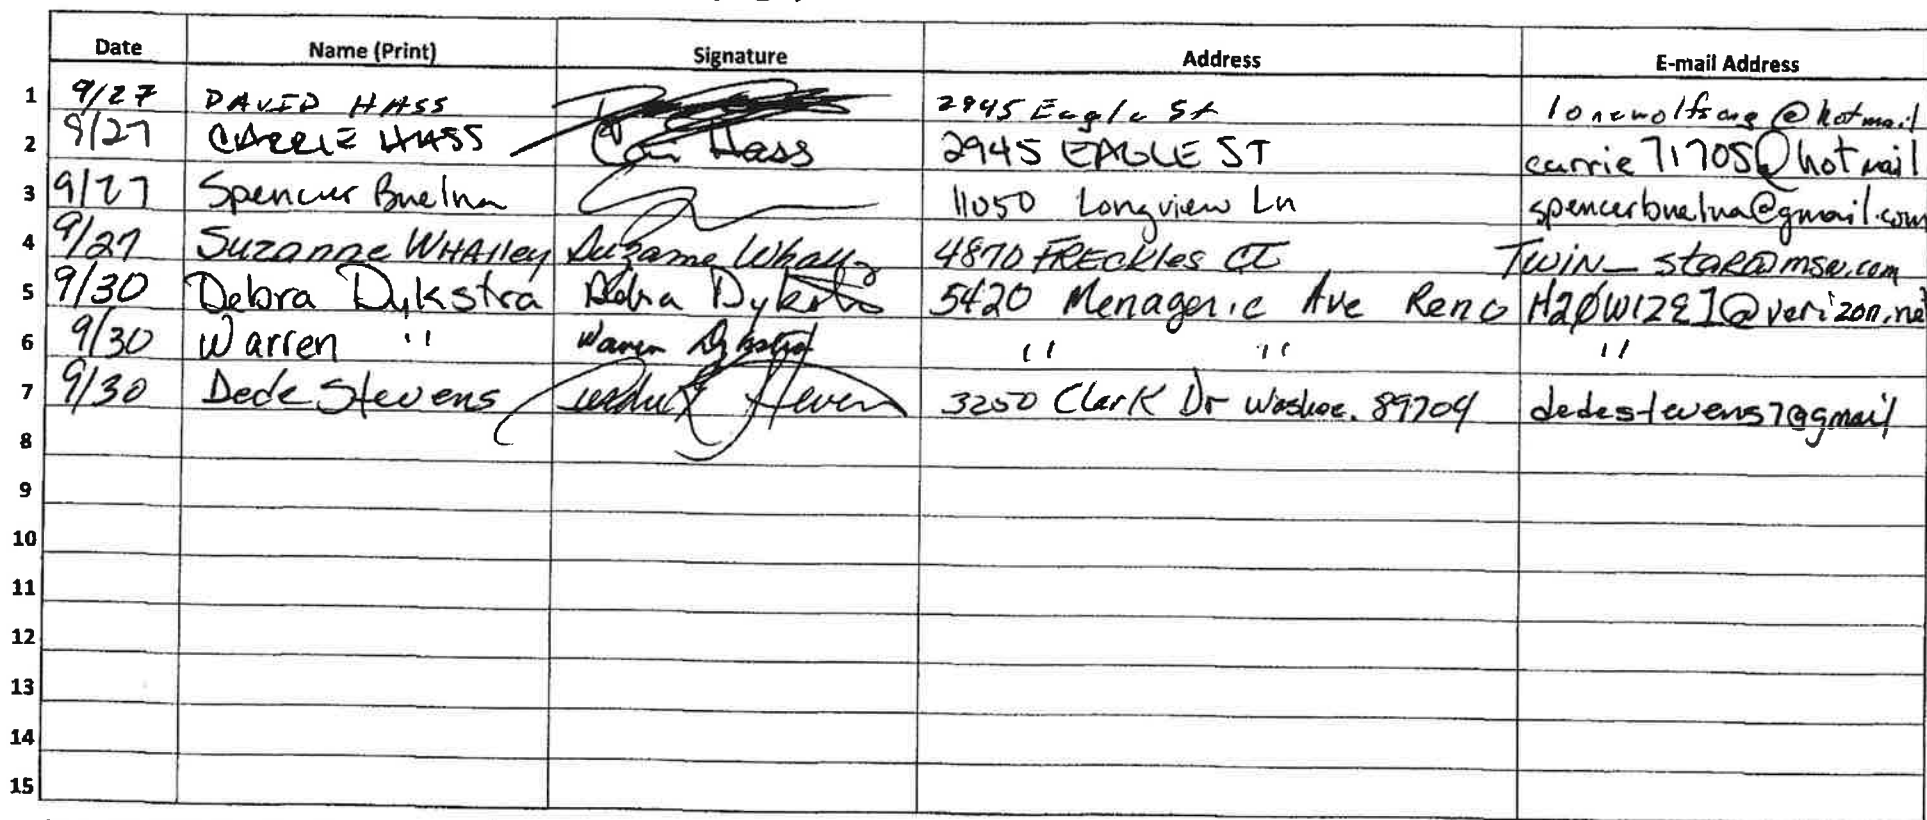 Date Name (Print) Signature Address E-mail Address
1 9/27 DAVID HASS 2945 Eagle St lonewolfsong@hotmail
2 9/27 CARRIE HASS Hass 2945 EAGLE ST carrie71705@hotmail
3 9/27 Spencer Buelna 11050 Longview Ln spencerbuelna@gmail.com
4 9/27 Suzanne WHAlley Suzanne Whalley 4870 FRECkles CT TWIN_staR@msn.com
5 9/30 Debra Dykstra Debra Dykstra 5420 Menagerie Ave Reno
6 9/30 Warren " Warren Dykstra " " "
7 9/30 Dede Stevens Stevens 3250 Clark Dr Washoe. 89704 dedestevens7@gmail
8
9
10
11
12
13
14
15